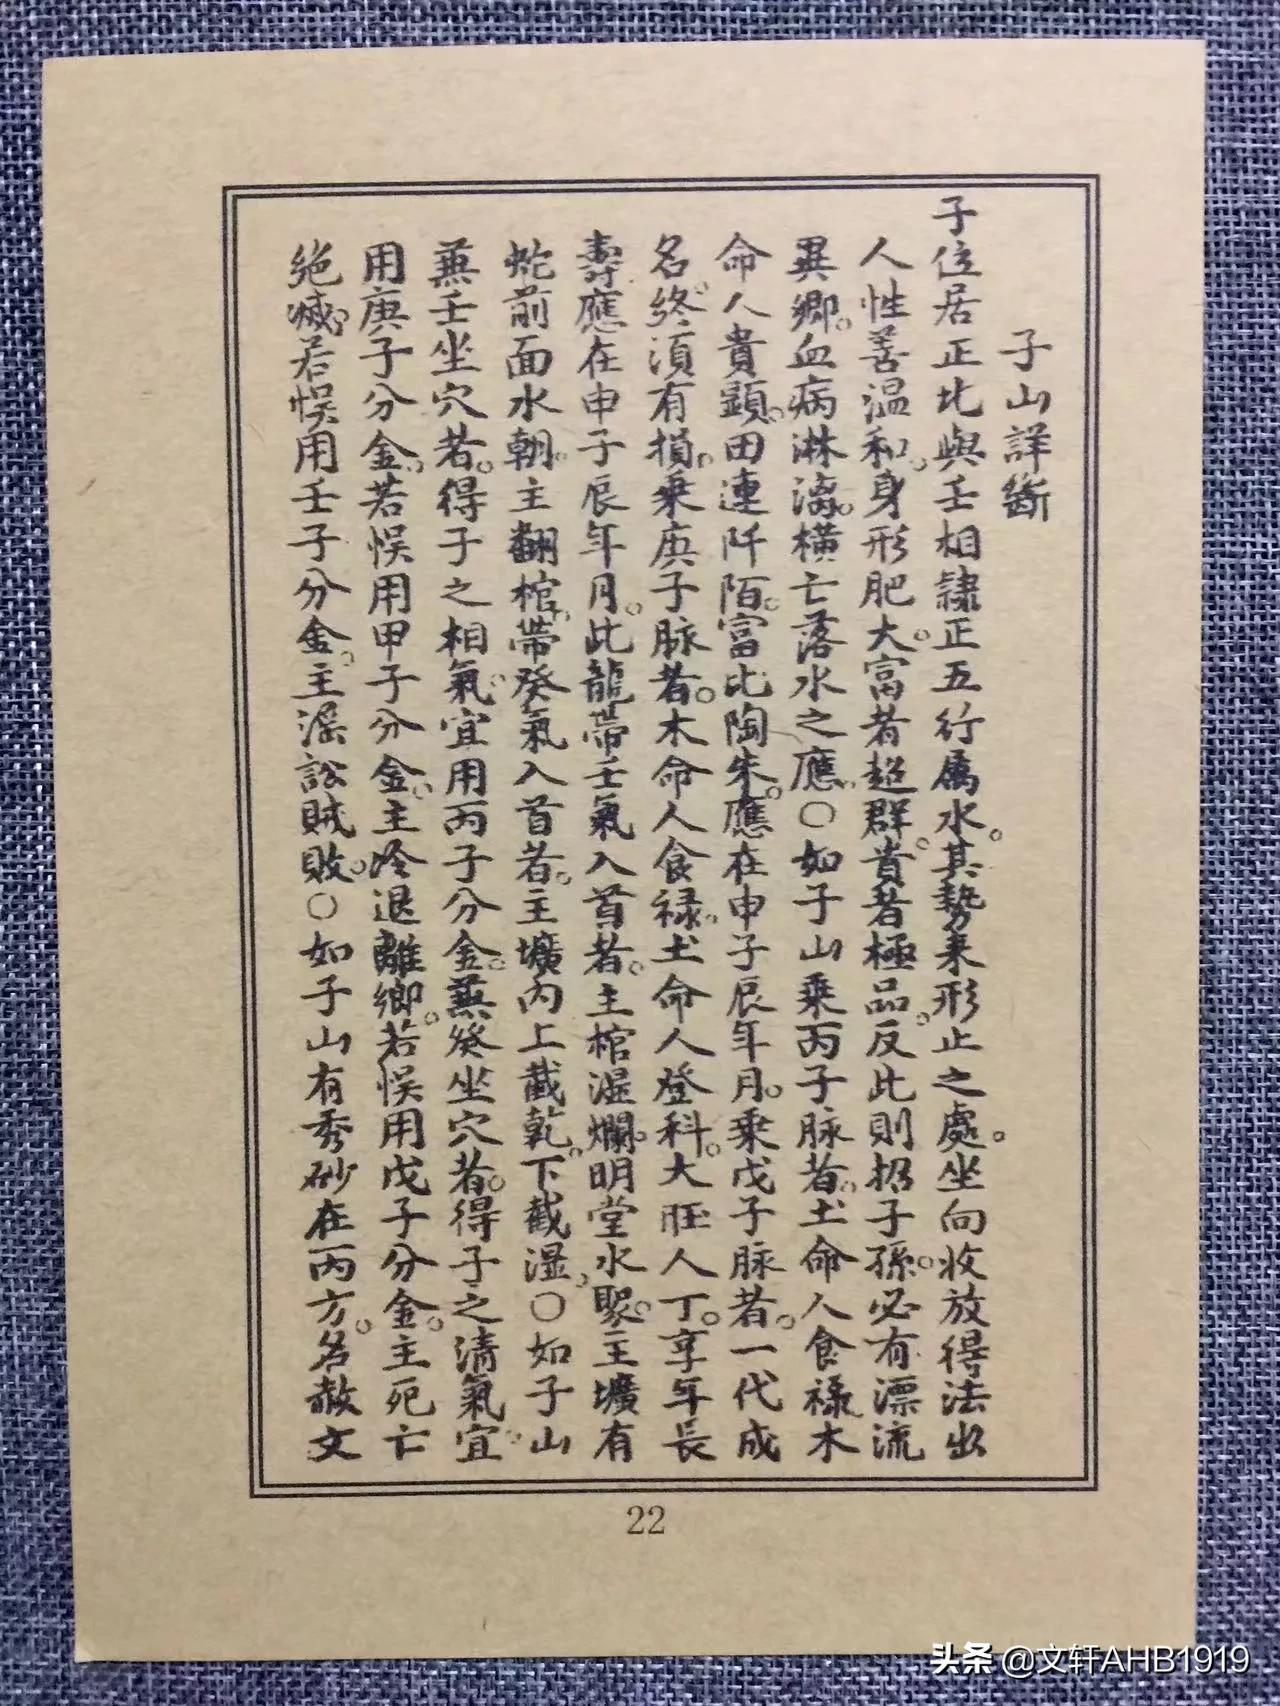 子山詳斷
子位居正北與壬相隸正五行属水。其勢来形止之處。坐向收放得法出
人性善温和。身形肥大。富者超群。貴者極品。反此則招子孫。必有漂流
異鄉。血病淋漓。橫亡落水之應。○如子山乘丙子脉者。土命人食祿木
命人貴顯。田連阡陌。富比陶朱。應在申子辰年月。乗戊子脉者。一代成
名。終須有損。乗庚子脉者。木命人食禄。土命人登科。大旺人丁。享年長
壽應在申子辰年月。此龍帶壬氣入首者。主棺湿爛。明堂水聚。主壙有
蛇前面水朝。主翻棺。帶癸氣入首者。主壙内上截乾。下截湿。○如子山
兼壬坐穴者。得子之相氣。宜用丙子分金。兼癸坐穴者。得子之清氣。宜
用庚子分金。若悮用甲子分金。主冷退離鄉。若悮用戊子分金。主死亡
絶滅。若悮用壬子分金。主淫訟賊敗。○如子山有秀砂在丙方。名赦文
22
头条 @文轩AHB1919